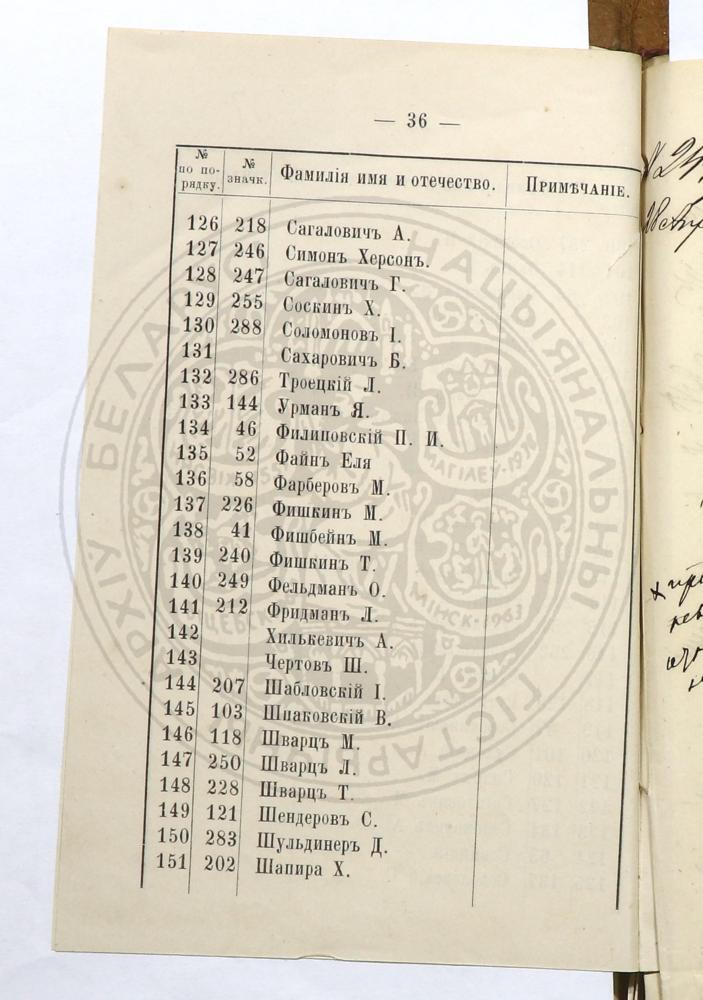 — 36 —
№ по порядку. № значк. Фамилія имя и отечество. Примѣчаніе.
126 218 Сагаловичъ А.
127 246 Симонъ Херсонъ.
128 247 Сагаловичъ Г.
129 255 Соскинъ Х.
130 288 Соломоновъ І.
131 Сахаровичъ Б.
132 286 Троецкій Л.
133 144 Урманъ Я.
134 46 Филиповскій П. И.
135 52 Файнъ Еля
136 58 Фарберовъ М.
137 226 Фишкинъ М.
138 41 Фишбейнъ М.
139 240 Фишкинъ Т.
140 249 Фельдманъ О.
141 212 Фридманъ Л.
142 Хилькевичъ А.
143 Чертовъ Ш.
144 207 Шабловскій І.
145 103 Шпаковскій В.
146 118 Шварцъ М.
147 250 Шварцъ Л.
148 228 Шварцъ Т.
149 121 Шендеровъ С.
150 283 Шульдинеръ Д.
151 202 Шапира Х.